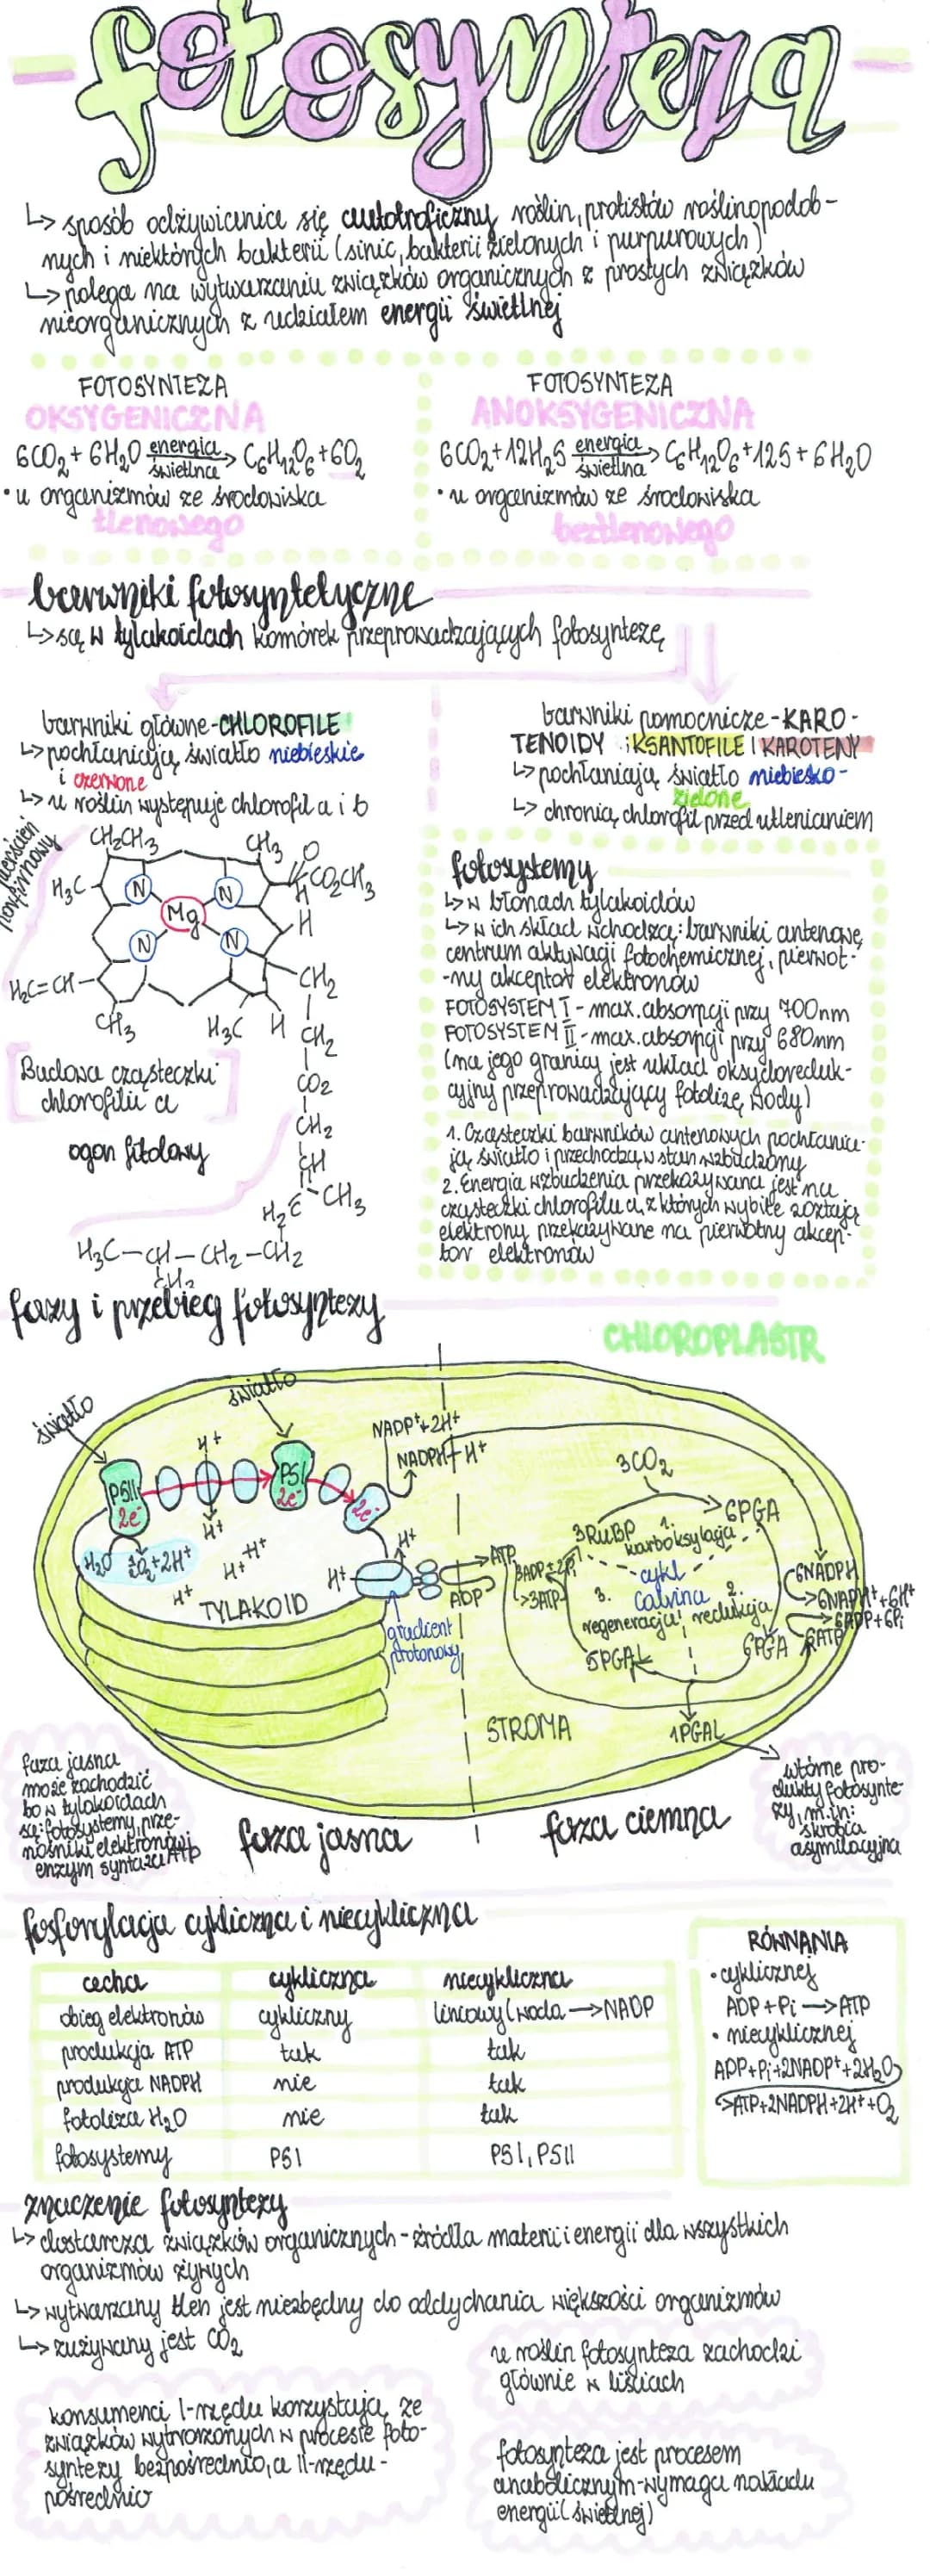 fotosynteza
↳ sposób odżywiania się autotroficzny roślin, protistów roślinopodob-
nych i niektórych bakterii (sinic, bakterii zielonych i purpurowych)
↳ polega na wytwarzaniu związków organicznych z prostych związków
nieorganicznych z udziałem energii świetlnej
FOTOSYNTEZA
OKSYGENICZNA
6CO₂ + 6H₂O energia świetlna → C₆H₁₂O₆ + 6O₂
• u organizmów ze środowiska
tlenowego
FOTOSYNTEZA
ANOKSYGENICZNA
6CO₂ + 12H₂S energia świetlna → C₆H₁₂O₆ + 12S + 6H₂O
• u organizmów ze środowiska
beztlenowego
barwniki fotosyntetyczne
↳ są w tylakoidach komórek przeprowadzających fotosyntezę
barwniki główne - CHLOROFILE
↳ pochłaniają światło niebieskie
i czerwone
↳ u roślin występuje chlorofil a i b
barwniki pomocnicze - KARO-
TENOIDY : KSANTOFILE I KAROTENY
↳ pochłaniają światło niebiesko-
zielone
↳ chronią chlorofil przed utlenianiem
pierścień
porfirynowy
CH₂CH₃
CH₃
O
H₃C
N
N
CO₂CH₃
H
Mg
H
N
N
H₂C=CH
CH₂
CH₃
H₃C
H
CH₂
CO₂
CH₂
CH
C
CH₃
H₂C
H₃C-CH-CH₂-CH₂
CH₂
Budowa cząsteczki
chlorofilu a
ogon fitolowy
fotosystemy
↳ w błonach tylakoidów
↳ w ich skład wchodzą: barwniki antenowe,
centrum aktywacji fotochemicznej, pierwot-
-ny akceptor elektronów
FOTOSYSTEM I - max. absorpcji przy 700nm
FOTOSYSTEM II - max. absorpcji przy 680nm
(na jego granicy jest układ oksydoreduk-
cyjny przeprowadzający fotolizę wody)
1. Cząsteczki barwników antenowych pochłania-
ją światło i przechodzą w stan wzbudzony
2. Energia wzbudzenia przekazywana jest na
cząsteczki chlorofilu a, z których wybite zostają
elektrony przekazywane na pierwotny akcep-
tor elektronów
fazy i przebieg fotosyntezy
CHLOROPLASTR
światło
światło
H⁺
NADP⁺+2H⁺
NADPH+H⁺
PSII
2e⁻
PSI
2e⁻
2e⁻
H⁺
H₂O
½O₂+2H⁺
H⁺
H⁺
H⁺
H⁺
H⁺
TYLAKOID
ATP
ADP
gradient
protonowy
3CO₂
6PGA
3RuBP
1.
karboksylacja
3ADP+2Pi
3ATP
cykl
Calvina
3.
regeneracja
2.
redukcja
6NADPH
6NADP⁺+6H⁺
6ADP+6Pi
6ATP
6PGA
5PGAL
1PGAL
STROMA
faza jasna
może zachodzić
bo w tylakoidach
są: fotosystemy, prze-
nośniki elektronów i
enzym syntaza ATP
faza jasna
faza ciemna
wtórne pro-
dukty fotosynte-
zy, m.in:
skrobia
asymilacyjna
fosforylacja cykliczna i niecykliczna
cecha cykliczna niecykliczna
obieg elektronów cykliczny liniowy (woda → NADP
produkcja ATP tak tak
produkcja NADPH nie tak
fotoliza H₂O nie tak
fotosystemy PSI PSI, PSII
RÓWNANIA
• cyklicznej
ADP + Pi → ATP
• niecyklicznej
ADP+Pi+2NADP⁺+2H₂O
→ATP+2NADPH+2H⁺+O₂
znaczenie fotosyntezy
↳ dostarcza związków organicznych - źródła materii i energii dla wszystkich
organizmów żywych
↳ wytwarzany tlen jest niezbędny do oddychania większości organizmów
↳ zużywany jest CO₂
u roślin fotosynteza zachodzi
głównie w liściach
konsumenci I-rzędu korzystają ze
związków wytworzonych w procesie foto-
syntezy bezpośrednio, a II-rzędu -
pośrednio
fotosynteza jest procesem
anabolicznym - wymaga nakładu
energii (świetlnej)